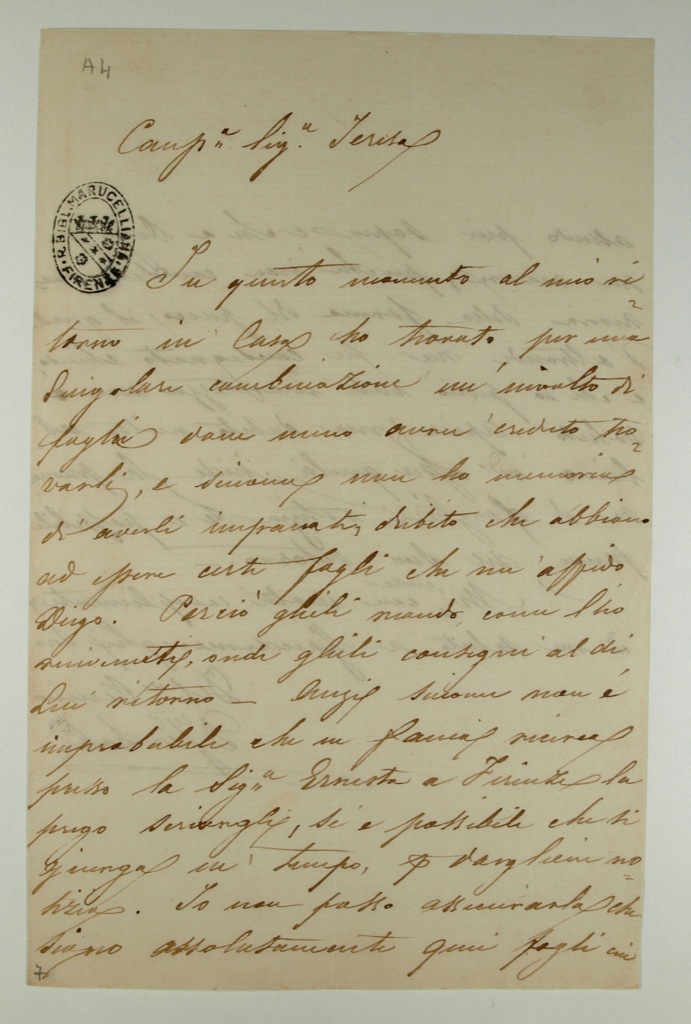 A4
R. BIBL. MARUCELLIANA
FIRENZE
Sig.ª Teresa
In questo momento al mio ri=
torno in Casa ho trovato per una
Singolare combinazione un'involto di
foglii dove meno avrei creduto tro=
varli, e siccome non ho memoria
di averli impaccati, dubito che abbiano
ad essere certi fogli che mi affido
Diego. Perciò glieli mando, come l'ho
rinvenuti, onde glieli consegni al di
Lui ritorno — Anzi siccome non è
improbabile che ne faccia ricerca
presso la Sigª Ernesta a Firenze la
prego scrivergli, se è possibile che ti
giunga in tempo, dargliene no=
tizia. Io non posso assicurarla che
siano assolutamente quei fogli
7